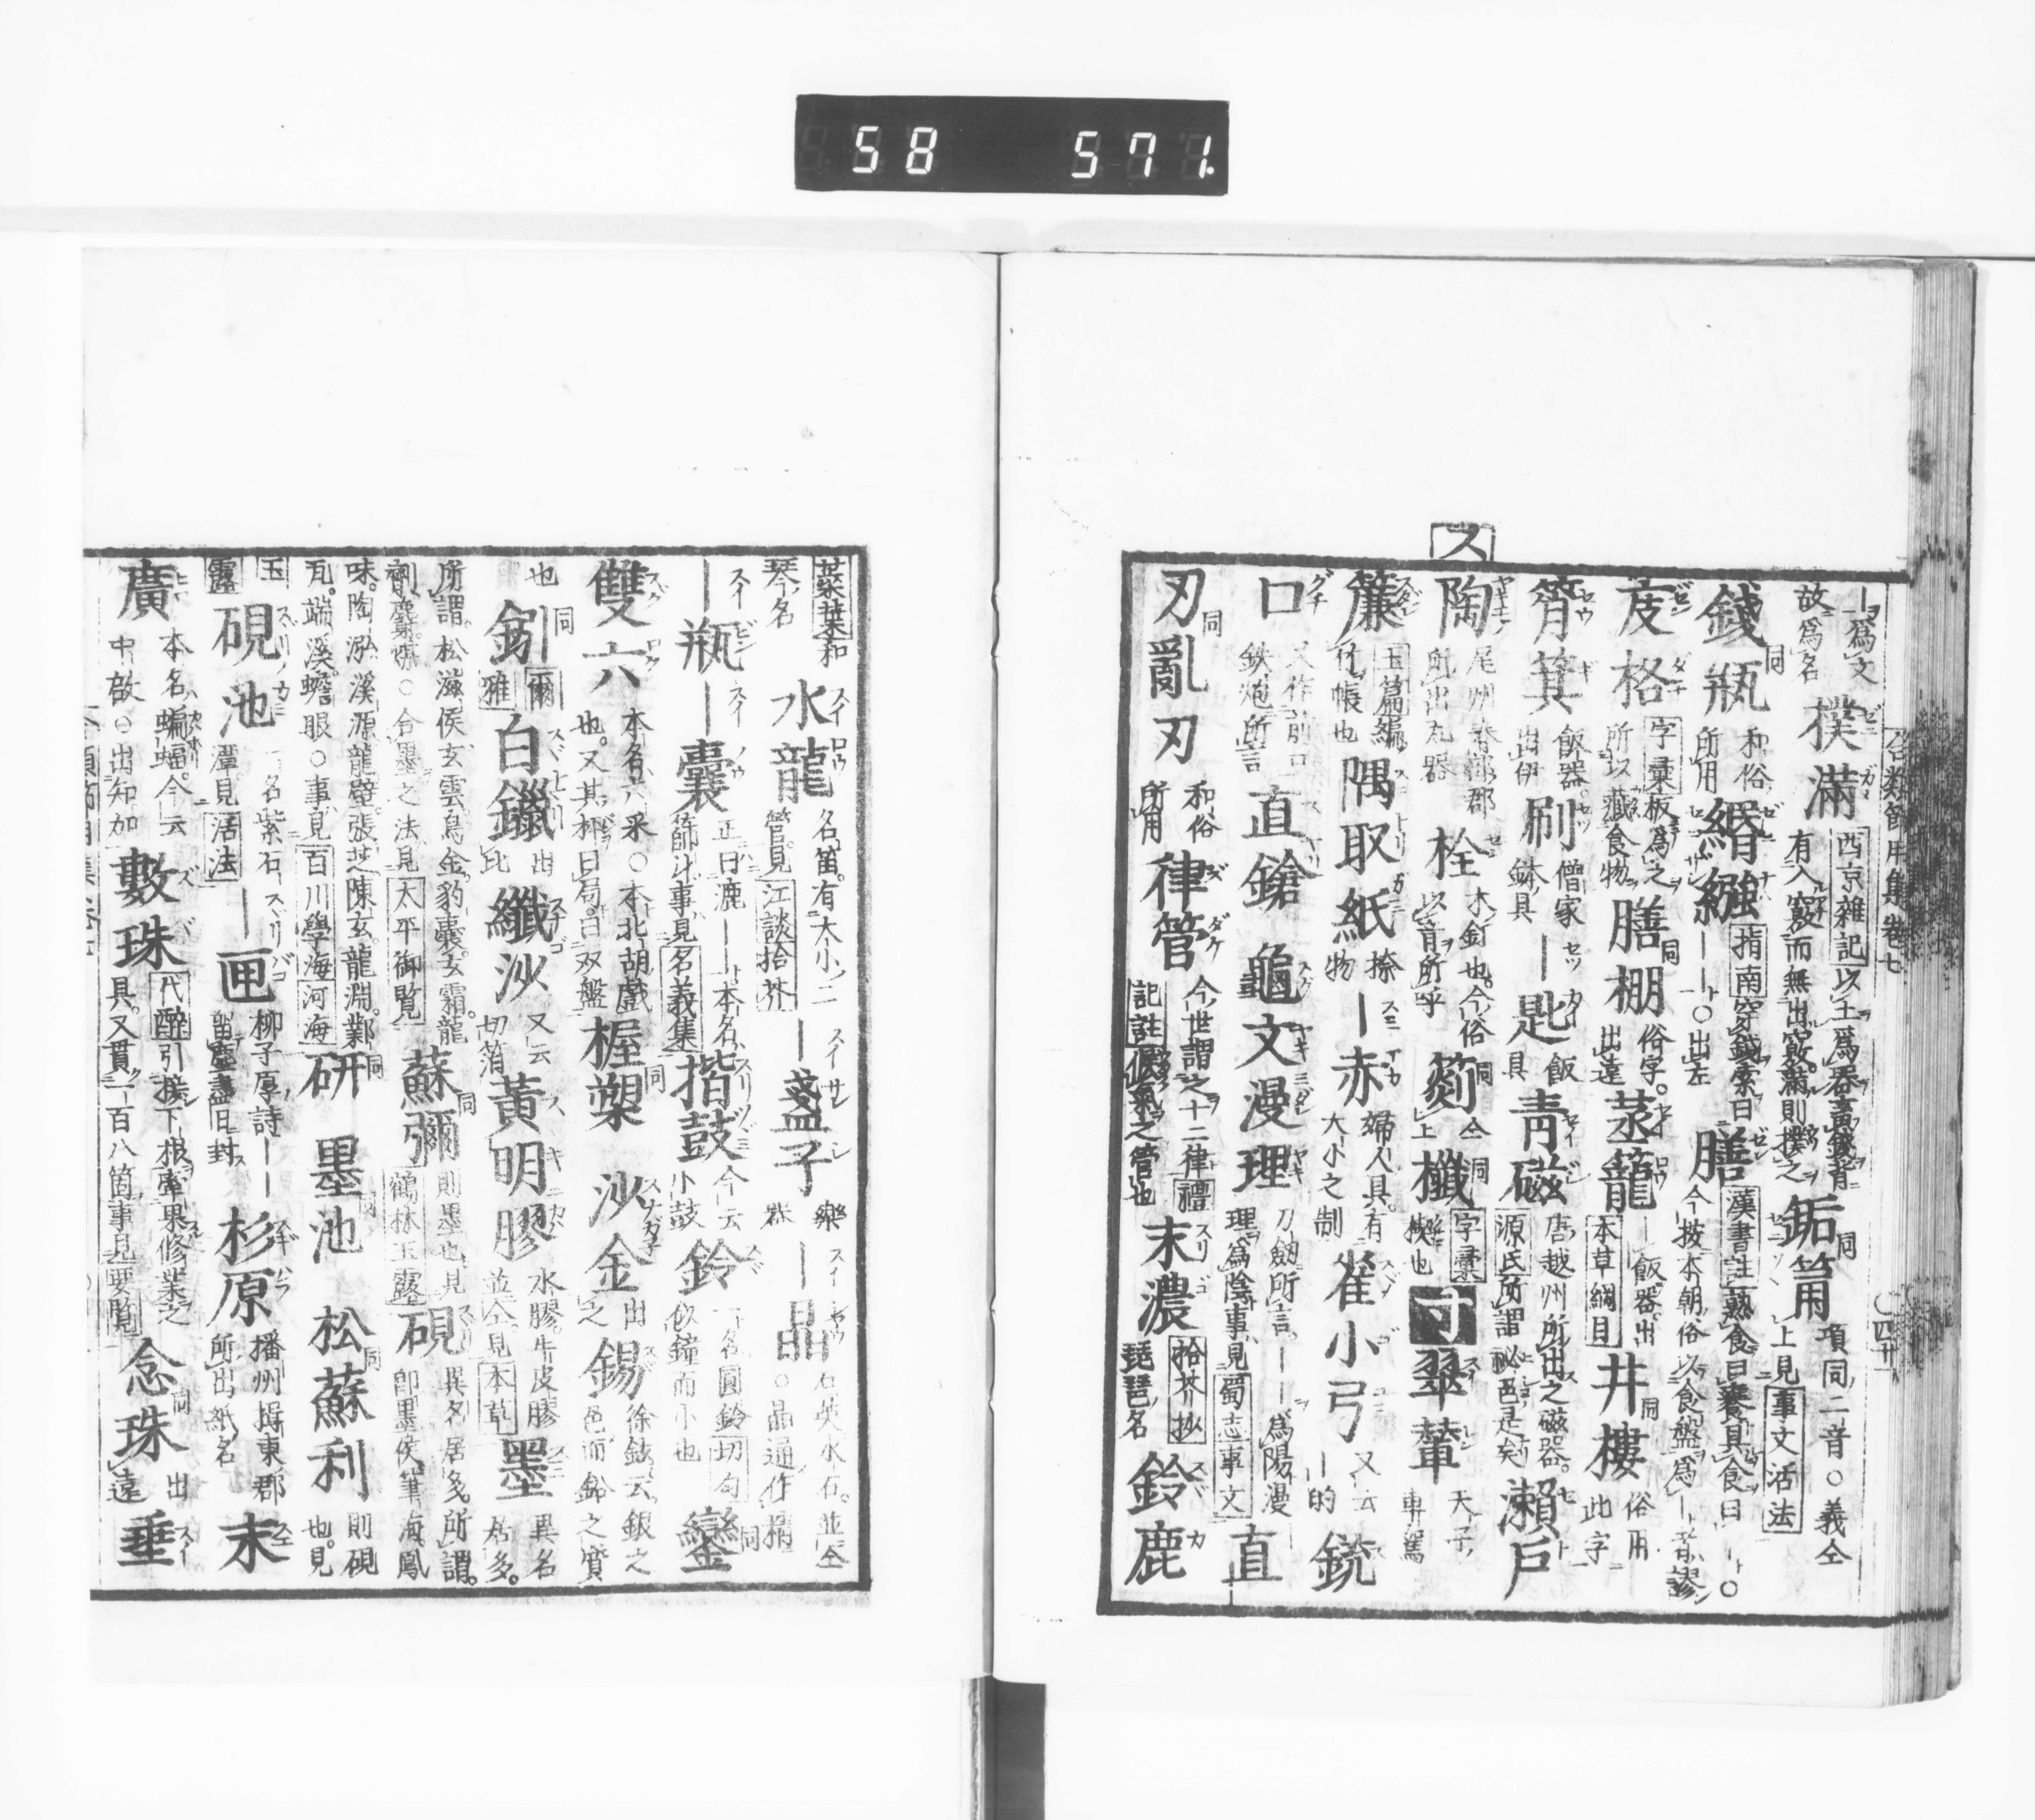 58 571.
合類節用集卷七
ス
一爲文故爲名 撲滿 西京雜記以土爲器蓄錢背有入竅而無出竅滿則撲之 缿 同 筩 項同二音○義仝上見事文活法
錢瓶 同 和俗所用 緡 繦 指南穿錢索曰一一○出左 膳 漢書註熟食曰一一○今按本朝俗以食盤爲一者謬
庋格 字彙板爲之所以藏食物 膳棚 同 俗字出遠 蒸籠 本草綱目一飯器出 井樓 同 俗用此字
筲箕 飯器出伊 刷 僧家鉢具 一匙 飯具 青磁 唐越州所出之磁器源氏所謂祕色是矣 瀨戸
陶 尾州春部郡所出瓦器 栓 木釘也今俗以音所呼 同 仝上 櫼 同 字彙楔也 寸 翠輦 天子車駕
簾 玉篇編竹帳也 隅取紙 捺物 一赤 婦人具有大小之制 雀小弓 又云一的 銃
口 又作前口鉄炮所言 直鎗 龜文 漫理 刀劒所言一一爲陽漫理爲陰事見蜀志事文 直
刃 同 亂刃 和俗所用 律管 今世謂之十二律禮記註候氣之管也 末濃 拾芥抄琵琶名 鈴鹿
菓葉和琴名 水龍 名笛有大小二管見江談拾芥 一盞子 樂器 一晶 石英水石並仝○晶通作精
一瓶 一囊 正曰漉一一本名篩斗事見名義集 揩鼓 今云小鼓 鈴 一名圓鈴切句似鐘而小也 鑾 同
雙六 本名六采○本北胡戲也又其枰曰局曰双盤 楃槊 同 沙金 出之 錫 徐鉉云銀之色而鉛之質
也 同 爾雅 白鑞 出比 纖沙 又云切箔 黃明膠 水膠牛皮膠並仝見本草 墨 異名居多
所謂松滋侯玄雲烏金豹囊玄霜龍劑麝煤○合墨之法見太平御覽 蘇彌 同 則墨也見鶴林玉露 硯 異名居多所謂卽墨侯筆海鳳
味陶泓溪源龍壁張芝陳玄龍淵鄴瓦端溪蟾眼○事見百川學海河海 研 同 墨池 同 松蘇利 同 則硯也見
玉露 硯池 一名紫石潭見活法 一匣 柳子厚詩一一留塵盡日封 杉原 播州揖東郡所出紙名 末
廣 本名蝙蝠今云中啟○出知加 數珠 代醉引接下根牽果修業之具又貫一百八箇事見要覽 念珠 同 出遠 垂